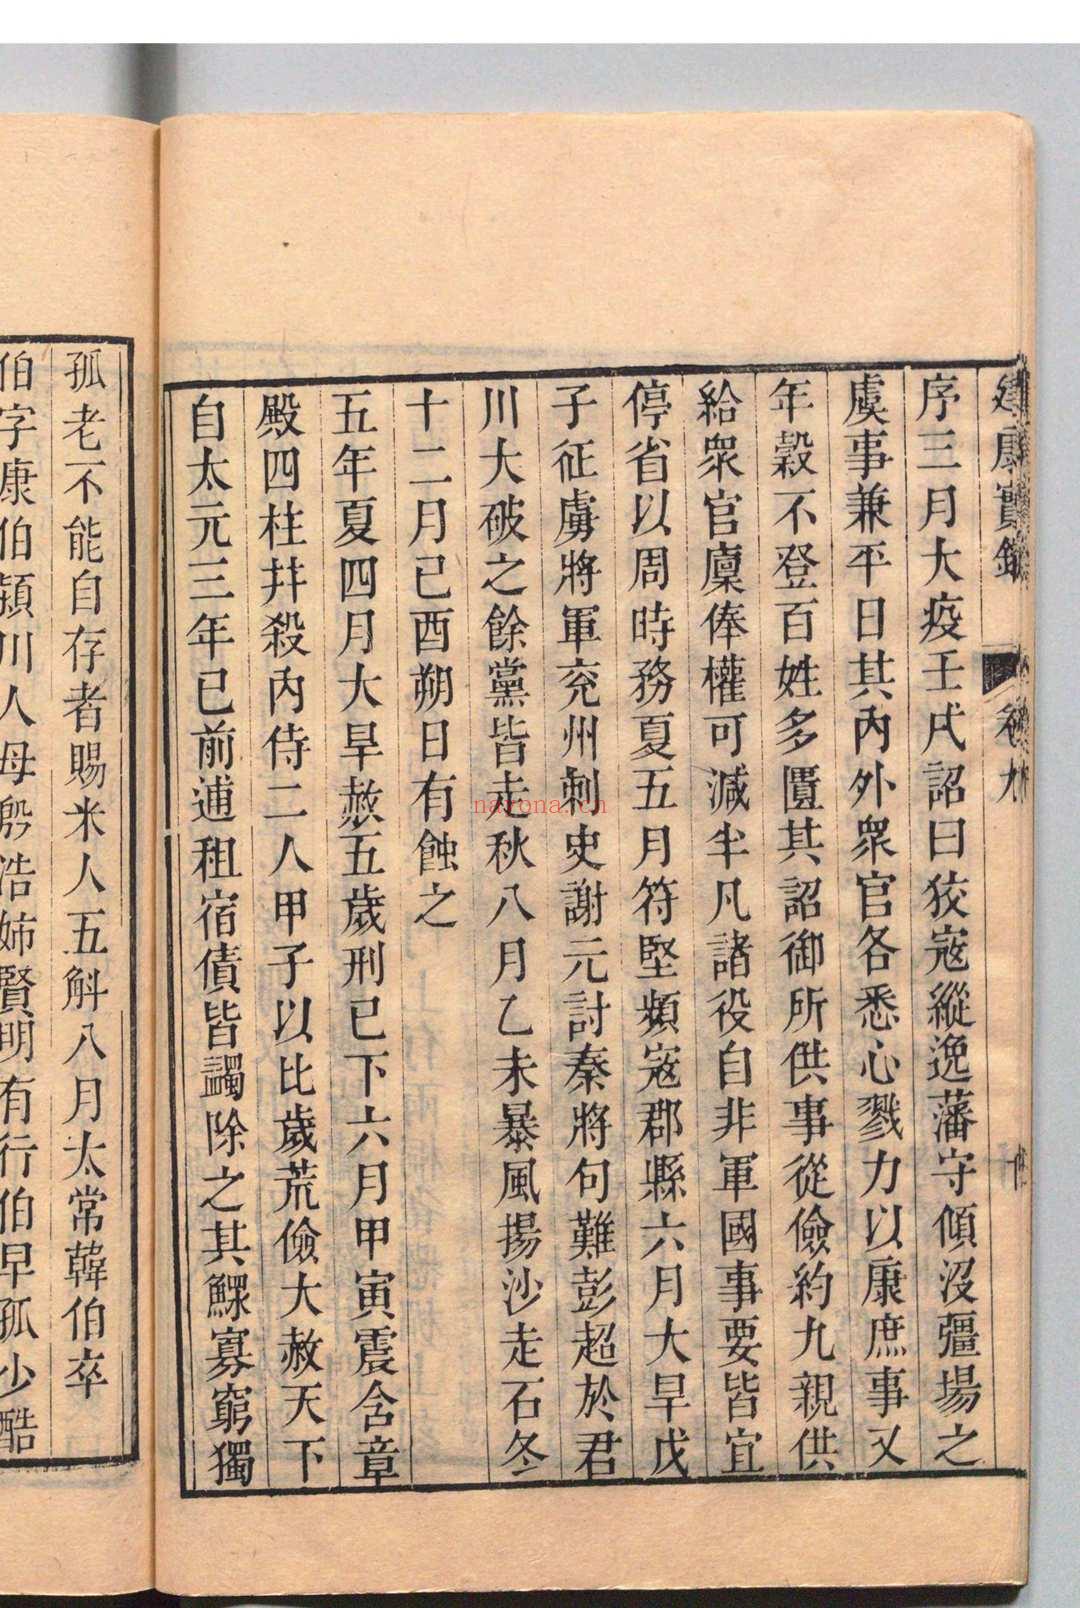 建康實錄 卷九
序三月大疫壬戌詔曰狡寇縱逸藩守傾没彊場之
虞事兼平日其內外衆官各悉心戮力以康庶事又
年穀不登百姓多匱其詔御所供事從儉約九親供
給衆官廩俸權可減半凡諸役自非軍國事要皆宜
停省以周時務夏五月符堅頻寇郡縣六月大旱戊
子征虜將軍兖州刺史謝元討秦將句難彭超於君
川大破之餘黨皆走秋八月乙未暴風揚沙走石冬
十二月己酉朔日有蝕之
五年夏四月大旱赦五歲刑已下六月甲寅震含章
殿四柱并殺內侍二人甲子以比歲荒儉大赦天下
自太元三年已前逋租宿債皆蠲除之其鰥寡窮獨
孤老不能自存者賜米人五斛八月太常韓伯卒
伯字康伯潁川人母殷浩姊賢明有行伯早孤少酷
nayona.cn